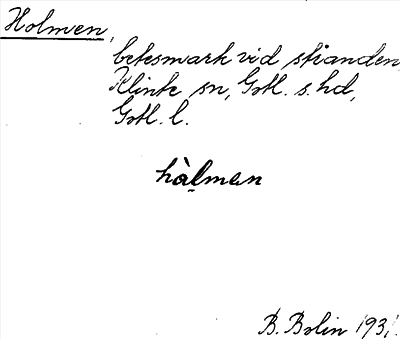 Holmen,
betesmark vid stranden,
Klinte sn, Gotl. s. hd,
Gotl. l.
hàlmen
B. Bolin 193